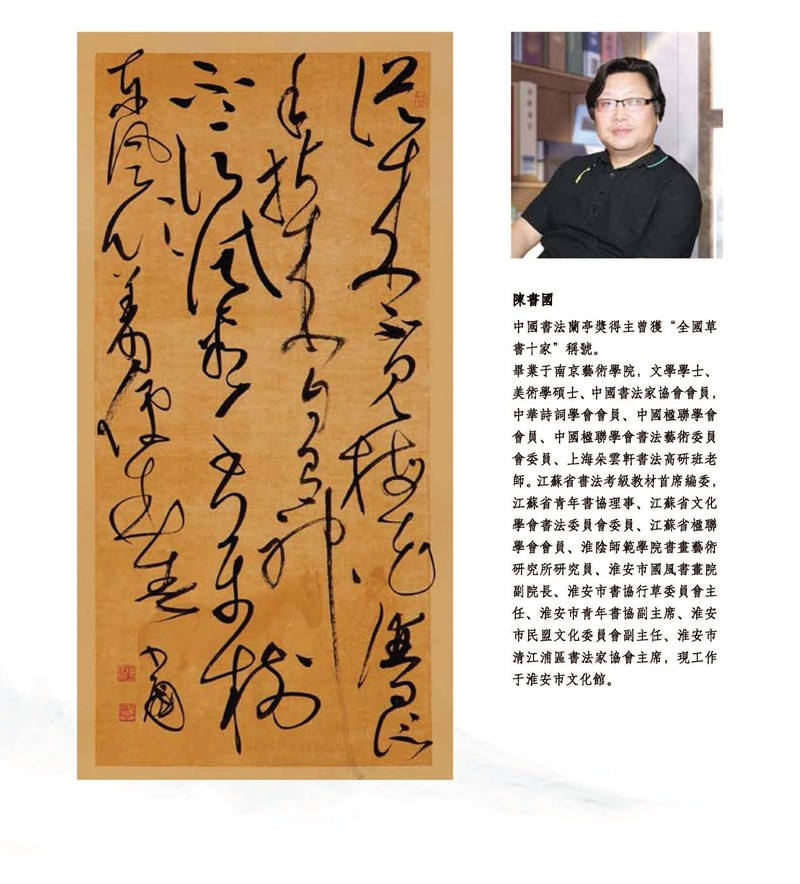 從来不見梅花譜信
手拈来自有神
不信試看千萬樹
东風吹着便成春 書國
陳書國
中國書法蘭亭獎得主曾獲“全國草
書十家”稱號。
畢業于南京藝術學院，文學學士、
美術學碩士、中國書法家協會會員，
中華詩詞學會會員、中國楹聯學會
會員、中國楹聯學會書法藝術委員
會委員、上海朵雲軒書法高研班老
師。江蘇省書法考級教材首席編委，
江蘇省青年書協理事、江蘇省文化
學會書法委員會委員、江蘇省楹聯
學會會員、淮陰師範學院書畫藝術
研究所研究員、淮安市國風書畫院
副院長、淮安市書協行草委員會主
任、淮安市青年書協副主席、淮安
市民盟文化委員會副主任、淮安市
清江浦區書法家協會主席，現工作
于淮安市文化館。